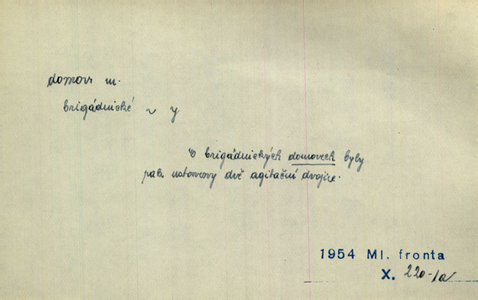 domov m.
brigádnické ~ y
V brigádnických domovech byly
pak ustaveny dvě agitační dvojice.
1954 Ml. fronta
X. 220-1a